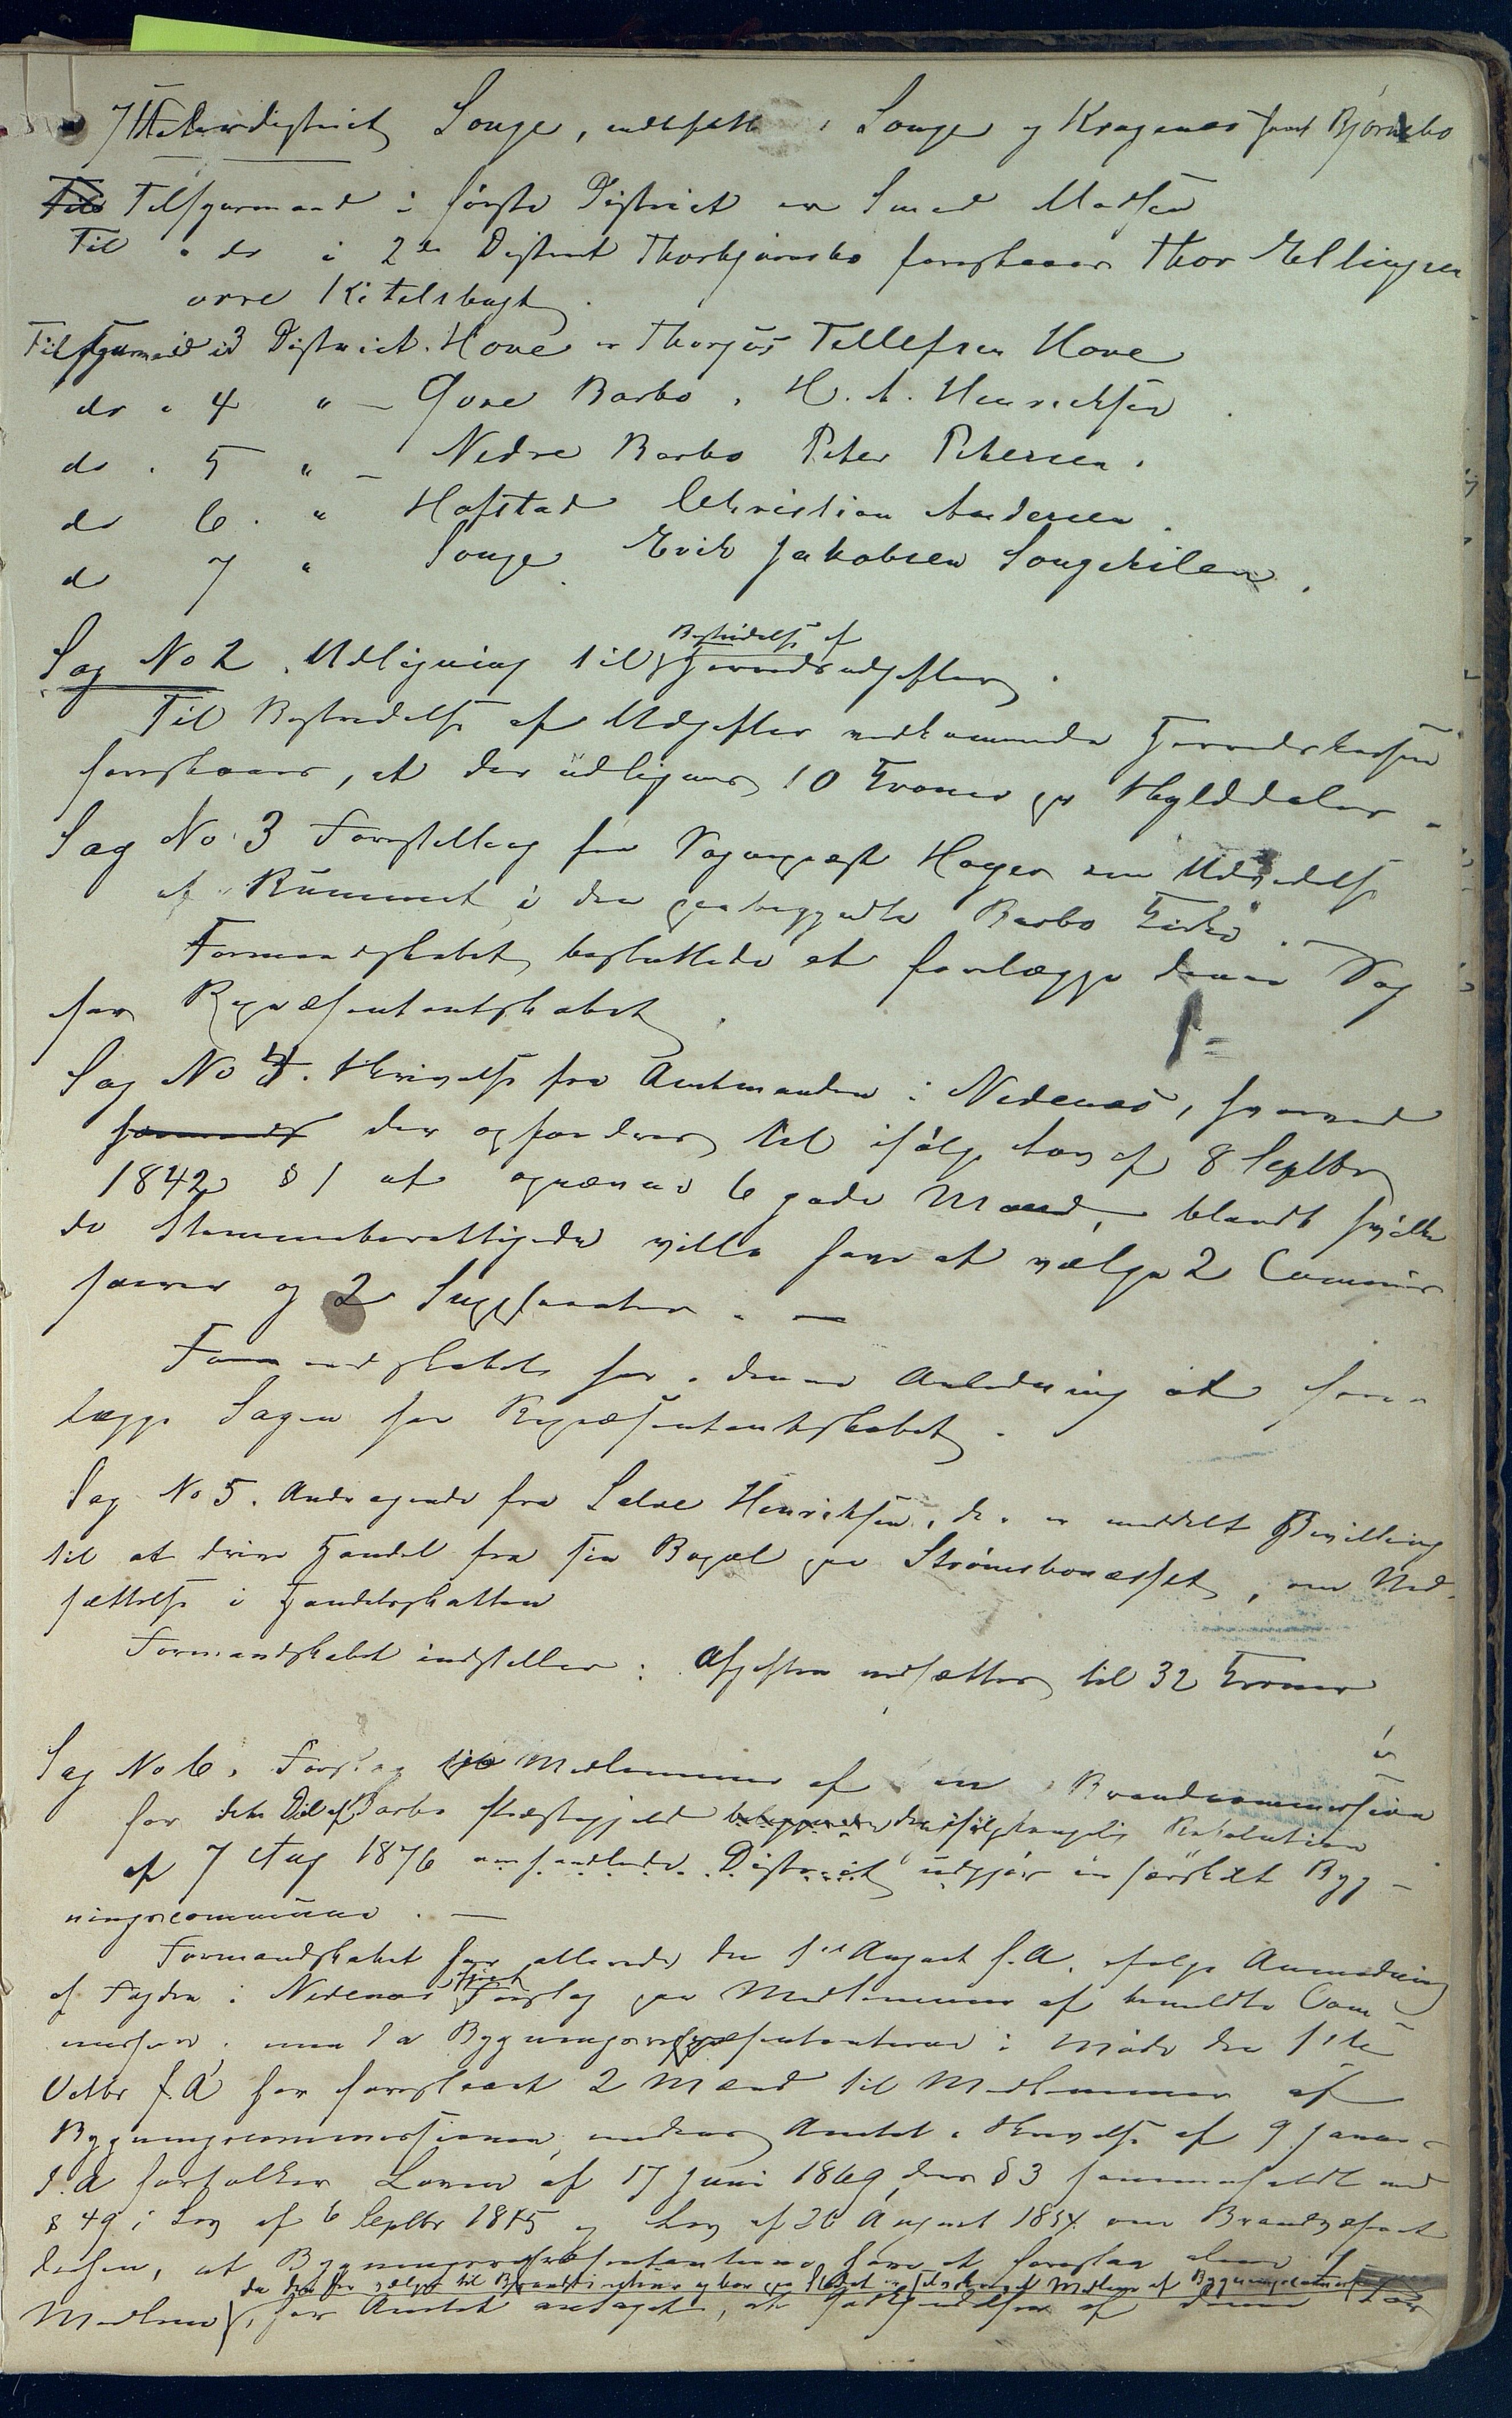 7 District Songe, indbefattet Songe og Kragenæs samt Bjørnebo
Tilsynsmand i første District er Smed Madsen
Til do i 2det District Thorbjørnsbo foreslaaes Thor Ellingsen
øvre Kitelsbugt.
Tilsynsmand i 3 District Hove er Thorjus Tellefsen Hove
do i 4 " – Øvre Barbo, H. A. Henrichsen.
do . 5 " – Nedre Barbo Peter Petersen.
do 6 . " Hofstad Christian Andersen.
d 7 " Songe Erik Jakobsen Songekilen.
Sag No 2. Udligning til Bestridelse af Herredsudgifter.
Til Bestridelse af Udgifter vedkommende Herredskassen
foreslaaes, at der udlignes 10 Kroner pr Skylddaler.
Sag No 3 Forestilling fra Sogneprest Hager om Udvidelse
af Rummet i den paabegyndte Barbo Kirke. –
Formandskabet besluttede at forelægge denne Sag
for Repræsentantskabet.
Sag No 4. Skrivelse fra Amtmanden i Nedenæs, hvorved
der opfordres til ifølge Lov af 8 Septbr
1842 § 1 at opnævne 6 gode Mænd, blandt hvilke
de Stemmeberettigede ville have at vælge 2 Commis-
sairer og 2 Suppleanter. –
Formandskabet har i denne Anledning at fore-
lægge Sagen for Repræsentantskabet.
Sag No 5. Andragende fra Salve Henriksen, der er meddelt Bevilling
til at drive Handel fra sin Bopæl paa Strømsbonæsset, om Ned-
sættelse i Handelsskatten
Formandskabet indstiller: Afgiften nedsættes til 32 Kroner
Sag No 6. Forslag til Medlemmer af en Brandcommission
for den Del af Barbo Præstegjeld der ifølge kongelig Resolution
af 7 Aug 1876 District udgjør en særskilt Byg-
ningscommune. –
Formandskabet har allerede den August f.A. efter Anmodning
af Fogden i Nedenæs gjort Forslag paa Medlemmer af bemeldte Com-
mission; men da Bygningsrepræsentanterne i Møde den
Octbr f.A. har foreslaaet 2 Mænd til Medlemmer af
Bygningscommissionen, Amtet i Skrivelse af 9 Januar
d.A. Loven af 17 Juni 1869, dens § 3 sammenholdt med
§ 49 i Lov af 6 Septbr 1845 og Lov af 26 August 1854 om Brandvæsenet
derhen, at Bygningsrepræsentanterne have at foreslaae
da vælges til Branddirektør og bor paa Stedet er Medlem af Bygningscommissionen
Medlem, har Amtet antaget, at af denne